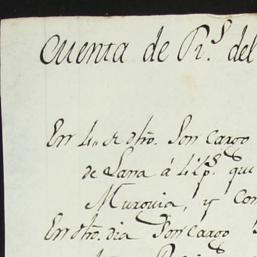 Cuenta de Rs. del
En 4,, de dho. Son cargo
de Lana á 41 ps. que
Murguia, y con
En dho. dia Son cargo